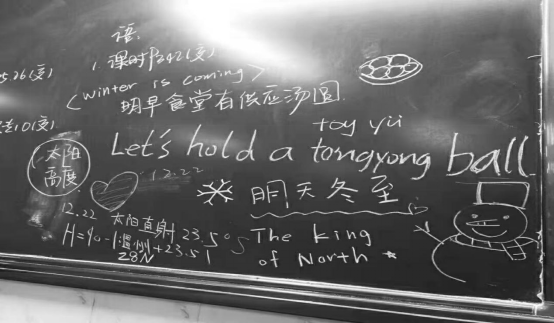 语.
1.课时P242(1(变)
526(变)
<winter is coming>
明早食堂有供应汤圆.
10(变)
toy yu
Let's hold a tongyong ball
太阳
高度
12.22
明天冬至
12.22 太阳直射 23.5°S
H=90-|温州+23.5|
28N
The king
of North